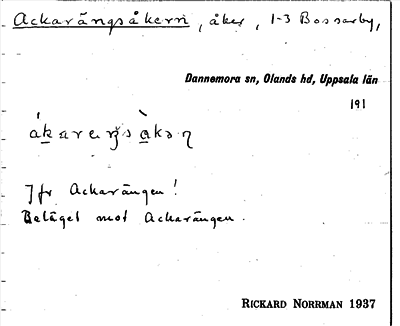 Ackarängsåkern, åker, 1-3 Bossarby,
Dannemora sn, Olands hd, Uppsala län
191
Jfr Ackarängen!
Beläget mot Ackarängen.
RICKARD NORRMAN 1937